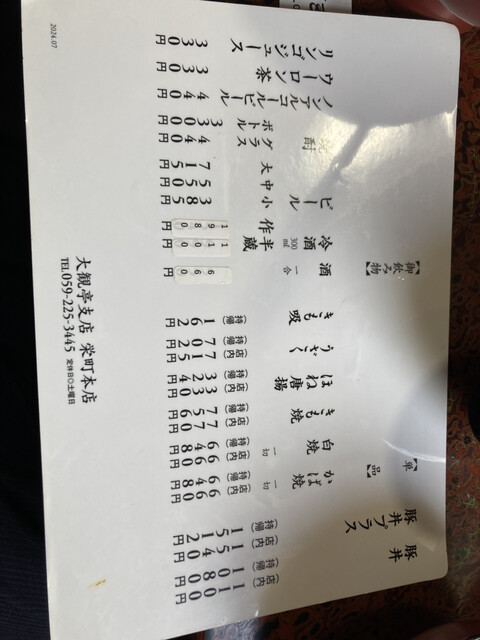 豚丼
(店内) 1100円
(持帰) 1080円
豚丼プラス
(店内) 1540円
(持帰) 1512円
【単品】
かば焼 一切
(店内) 660円
(持帰) 648円
白焼 一切
(店内) 660円
(持帰) 648円
きも焼
(店内) 770円
(持帰) 756円
ほね唐揚
(店内) 330円
(持帰) 324円
うざく
(店内) 715円
(持帰) 702円
きも吸
(持帰) 162円
【御飲み物】
酒 一合 660円
冷酒 300ml
半蔵 1100円
作 1980円
ビール
小 385円
中 550円
大 715円
焼酎
グラス 440円
ボトル 3300円
ノンアルコールビール 440円
ウーロン茶 330円
リンゴジュース 330円
大観亭支店 栄町本店
TEL059-225-3445 定休日◎土曜日
2024.07